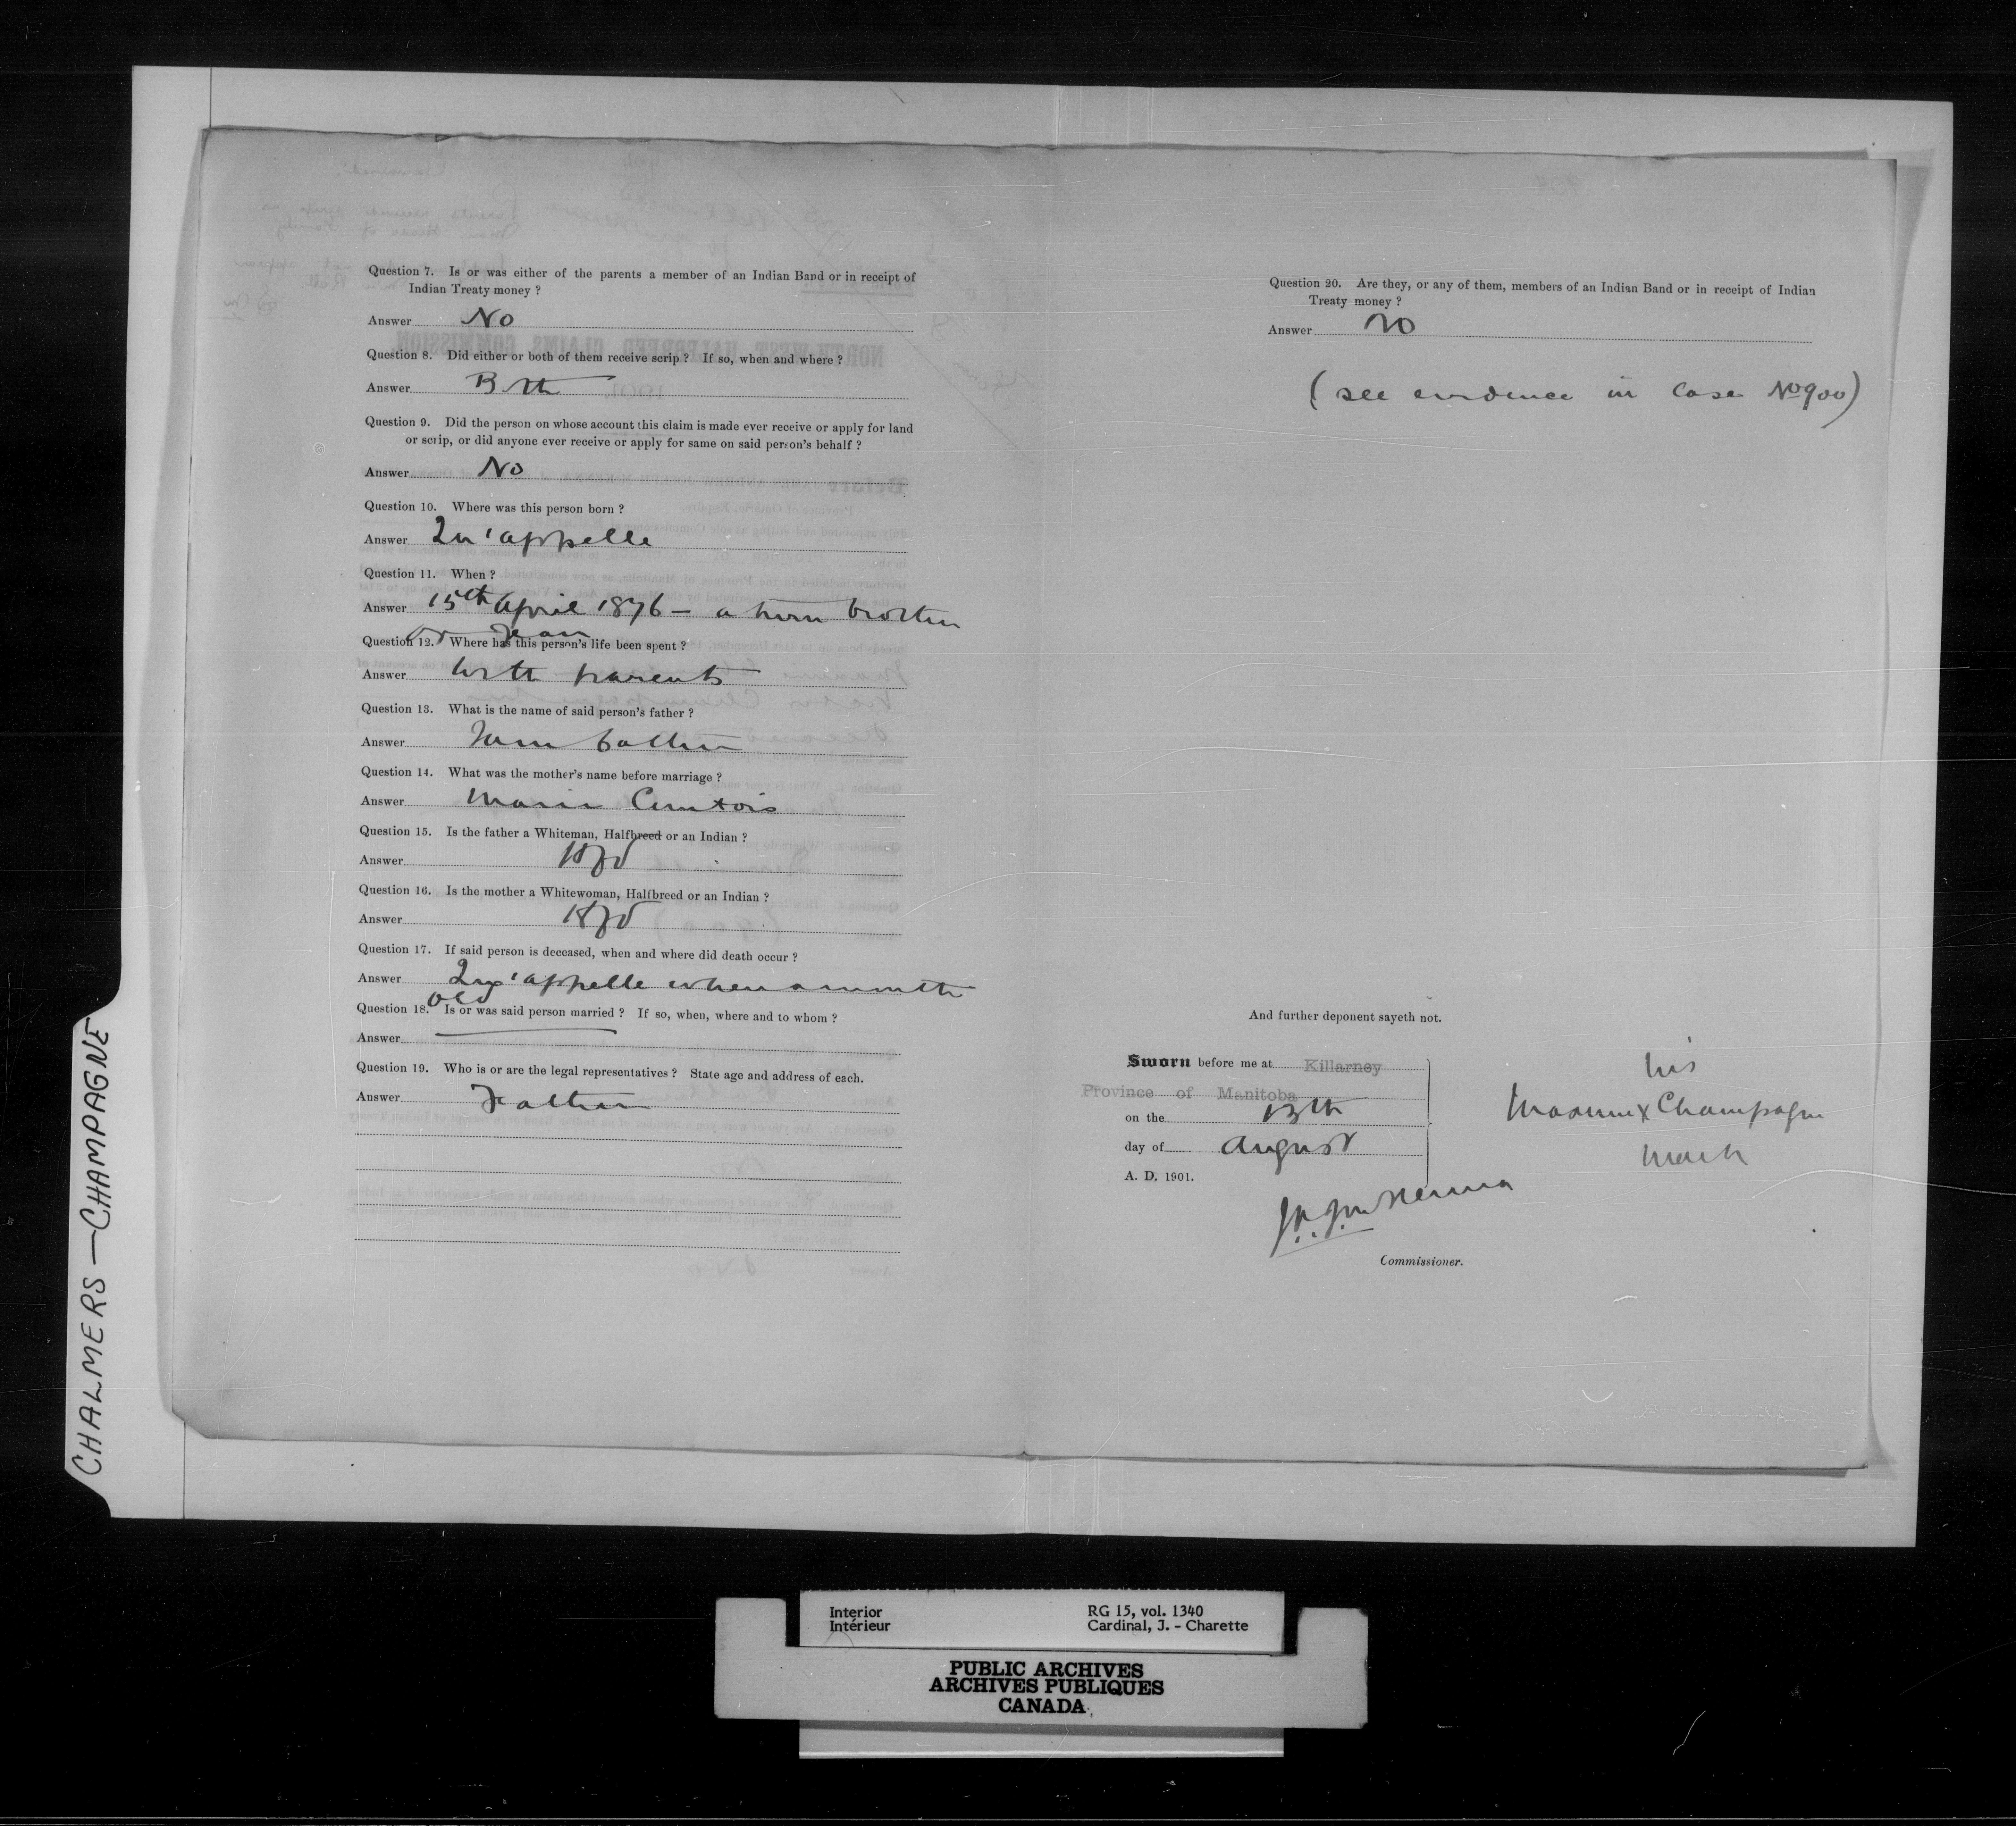 Question 7. Is or was either of the parents a member of an Indian Band or in receipt of
Indian Treaty money ?
Answer No
Question 8. Did either or both of them receive scrip ? If so, when and where ?
Answer Both
Question 9. Did the person on whose account this claim is made ever receive or apply for land
or scrip, or did anyone ever receive or apply for same on said person's behalf ?
Answer No
Question 10. Where was this person born ?
Answer Qu'appelle
Question 11. When ?
Answer 15th April 1876 — a twin brother
or Jean
Question 12. Where has this person's life been spent ?
Answer With parents
Question 13. What is the name of said person's father ?
Answer father
Question 14. What was the mother's name before marriage ?
Answer Marie Comtois
Question 15. Is the father a Whiteman, Halfbreed or an Indian ?
Answer Hfd
Question 16. Is the mother a Whitewoman, Halfbreed or an Indian ?
Answer Hfd
Question 17. If said person is deceased, when and where did death occur ?
Answer Qu'appelle when a month
old
Question 18. Is or was said person married ? If so, when, where and to whom ?
Answer
Question 19. Who is or are the legal representatives ? State age and address of each.
Answer Father
Question 20. Are they, or any of them, members of an Indian Band or in receipt of Indian
Treaty money ?
Answer no
(see evidence in case No 900)
And further deponent sayeth not.
Sworn before me at Killarney
Province of Manitoba
on the 13th
day of August
A. D. 1901.
his
Maxime x Champagne
mark
Commissioner.
CHALMERS — CHAMPAGNE
Interior
Intérieur
RG 15, vol. 1340
Cardinal, J. - Charette
PUBLIC ARCHIVES
ARCHIVES PUBLIQUES
CANADA